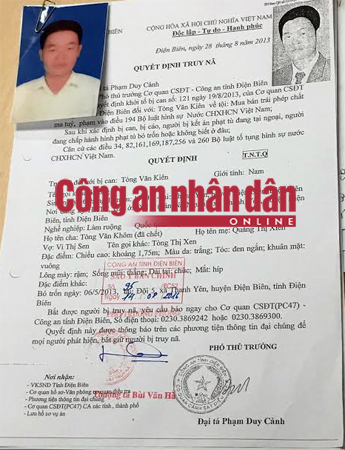 CỘNG HÒA XÃ HỘI CHỦ NGHĨA VIỆT NAM
Độc lập - Tự do - Hạnh phúc
Điện Biên, ngày 28 tháng 8 năm 2013
QUYẾT ĐỊNH TRUY NÃ
tá Phạm Duy Cảnh
Phó thủ trưởng Cơ quan CSĐT - Công an tỉnh Điện Biên
quyết định khởi tố bị can số: 121 ngày 19/8/2013, của Cơ quan CSĐT
Điện Biên đối với: Tòng Văn Kiên về tội: Mua bán trái phép chất
ma tuý, phạm vào điều 194 Bộ luật hình sự Nước CHXHCN Việt Nam;
Sau khi xác định bị can, bị cáo, người bị kết án phạt tù đang tại ngoại, người
đang chấp hành hình phạt tù bỏ trốn hoặc không biết ở đâu;
Căn cứ các điều 34, 82,161,169,187,256 và 260 Bộ luật tố tụng hình sự nước
CHXHCN Việt Nam.
QUYẾT ĐỊNH
T.N.T.Q
bị can: Tòng Văn Kiên Giới tính: Nam
Công an nhân dân
ONLINE
tỉnh Điện Biên
Nghề nghiệp: Làm ruộng
Họ tên cha: Tòng Văn Khôm (đã chết) Họ tên mẹ: Quàng Thị Xiên
Vợ: Vì Thị Sen Tên gọi khác: Tòng Thị Xen
Đặc điểm: Chiều cao: 1,75m; Màu da: trắng; Tóc: đen ngắn; khuôn mặt:
vuông
Lông mày: rậm; Sống mũi: thẳng; Dái tai: chúc; Mắt: híp
Đặc điểm khác:
CÔNG AN TỈNH ĐIỆN BIÊN
SAO Y BẢN CHÍNH
Bỏ trốn ngày: 06/5/2013, Đội 5, xã Thanh Yên, huyện Điện Biên, tỉnh
Điện Biên.
Ngày
Bắt được người bị truy nã, yêu cầu báo ngay cho Cơ quan CSĐT(PC47) -
Công an tỉnh Điện Biên, Số điện thoại: 0230.3869242 hoặc 0230.3869300.
Quyết định này được thông báo trên các phương tiện thông tin đại chúng để
mọi người phát hiện, bắt giữ người bị truy nã.
PHÓ THỦ TRƯỞNG
Nơi nhận:
- VKSND Tỉnh Điện Biên
- Phương tiện thông tin đại chúng
- Cơ quan CSĐT(PC47) CA các tỉnh, thành phố
- Lưu hồ sơ vụ án
Thượng tá Bùi Văn Hà
Đại tá Phạm Duy Cảnh